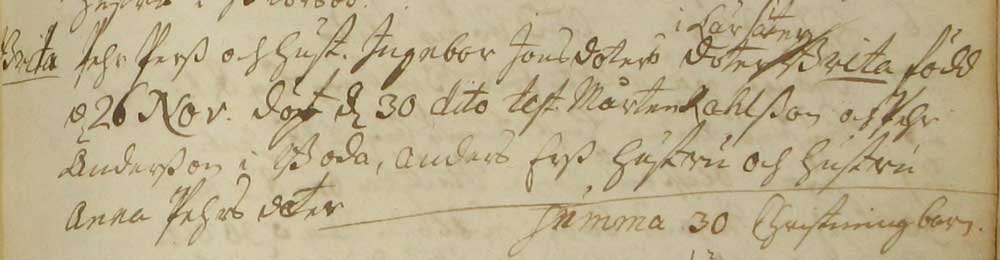 i Larsäter
Brita Pehr Perß och hust. Ingebor Jonsdoters doter Brita född
d 26 Nov. döpt d 30 dito test. Mårten Kahlßon och Pehr
Anderßon i Boda, Anders Erß hustru och hustru
Anna Pehrs doter
Summa 30 Christningbarn.